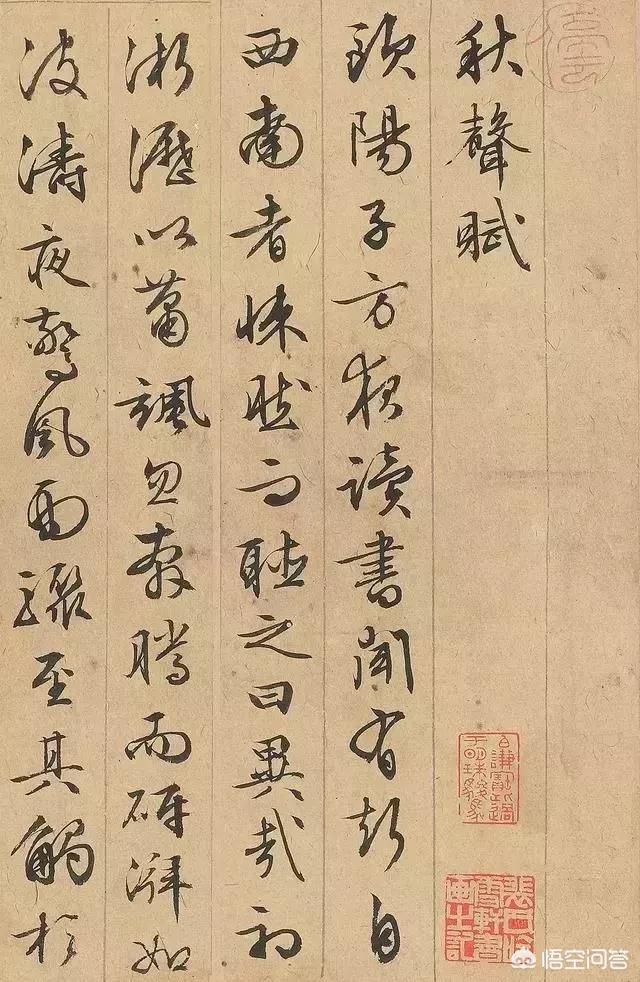 秋聲賦
歐陽子方夜讀書聞有聲自
西南者悚然而聽之曰異哉初
淅瀝以蕭颯忽奔騰而砰湃如
波濤夜驚風雨驟至其觸於
悟空问答